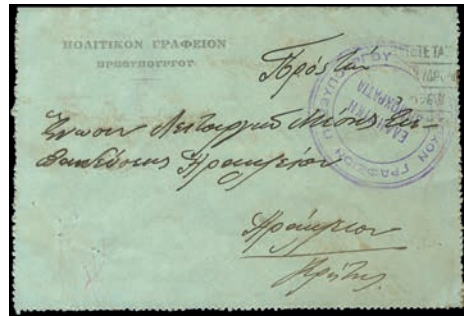 ΠΟΛΙΤΙΚΟΝ ΓΡΑΦΕΙΟΝ
ΠΡΩΘΥΠΟΥΡΓΟΥ
Πρὸς τὴν
Ἕνωσιν Λειτουργῶν Μέσης Ἐκ-
παιδεύσεως Ἡρακλείου
Ἡράκλειον
Κρήτης
ΕΛΛΗΝΙΚΗ
ΔΗΜΟΚΡΑΤΙΑ
ΠΟΛΙΤΙΚΟΝ ΓΡΑΦΕΙΟΝ ΠΡΩΘΥΠΟΥΡΓΟΥ